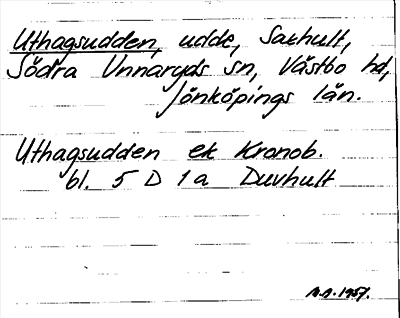 Uthagsudden, udde, Sakhult,
Södra Unnaryds sn, Västbo hd,
Jönköpings län.
Uthagsudden ek Kronob.
bl. 5 D 1a Duvhult
1957.